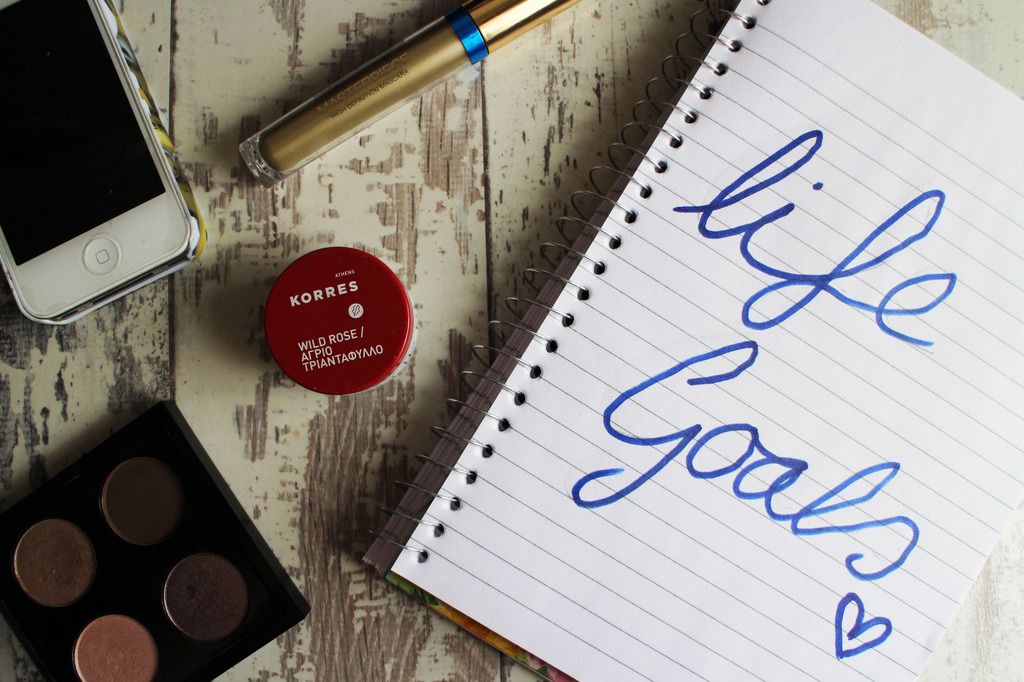 MASTERPIECE
HIGH DEFINITION MASCARA
ATHENS
KORRES
WILD ROSE /
ΑΓΡΙΟ
ΤΡΙΑΝΤΑΦΥΛΛΟ
life
Goals